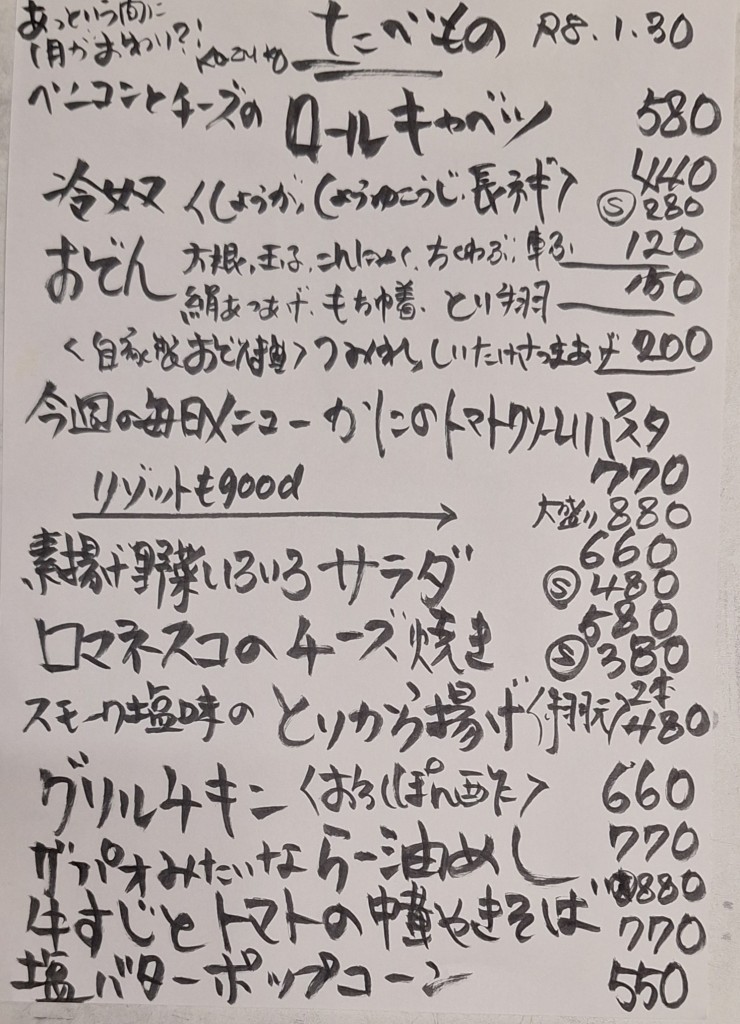 あっという間に
1月がおわり?!
たべもの R8.1.30
ベーコンとチーズの ロールキャベツ 580
冷奴 〈しょうが,しょうゆこうじ,長ネギ〉 440
Ⓢ 280
おでん 大根、玉子、こんにゃく、ちくわぶ、車ふ 120
絹あつあげ、もち巾着、とり手羽 150
〈自家製おでん種〉つみれ、しいたけさつまあげ 200
今週の毎日メニュー かにのトマトクリームパスタ
770
リゾットもgood
大盛り 880
素揚げ野菜いろいろ サラダ 660
Ⓢ 480
ロマネスコのチーズ焼き 580
Ⓢ 380
スモーク塩味の とりから揚げ〈手羽元〉2本 480
グリルチキン〈おろしぽん酢〉 660
ガパオみたいな らー油めし 770
880
牛すじとトマトの中華やきそば 770
塩バターポップコーン 550